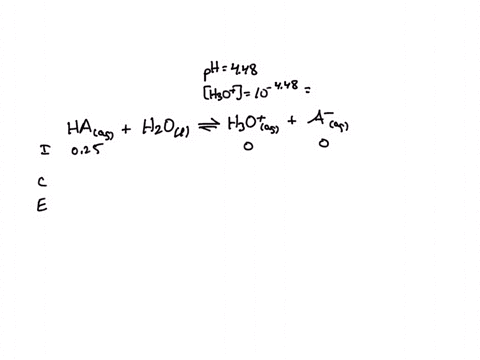 pH = 4.48
[H₃O⁺] = 10^-4.48 =
HA(aq) + H₂O(l) ⇌ H₃O⁺(aq) + A⁻(aq)
I 0.25 0 0
C
E